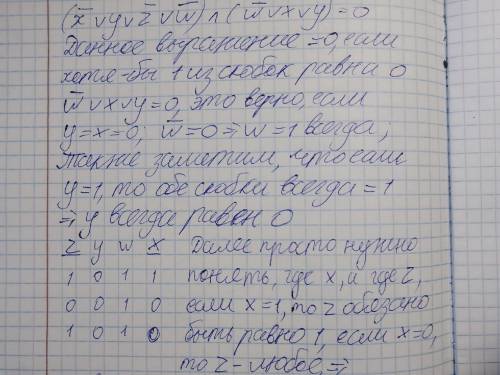 (x̅ ∨ y ∨ z̅ ∨ w̅) ∧ (w̅ ∨ x ∨ y) = 0
Данное выражение =0, если
хотя-бы 1 из скобок равна 0
w̅ ∨ x ∨ y = 0, это верно, если
y=x=0; w̅=0 ⇒ w=1 всегда;
Также заметим, что если
y=1, то обе скобки всегда = 1
⇒ y всегда равен 0
z y w x Далее просто нужно
1 0 1 1 понять, где x, и где z,
0 0 1 0 если x=1, то z обязано
1 0 1 0 быть равно 1, если x=0,
то z - любое, ⇒